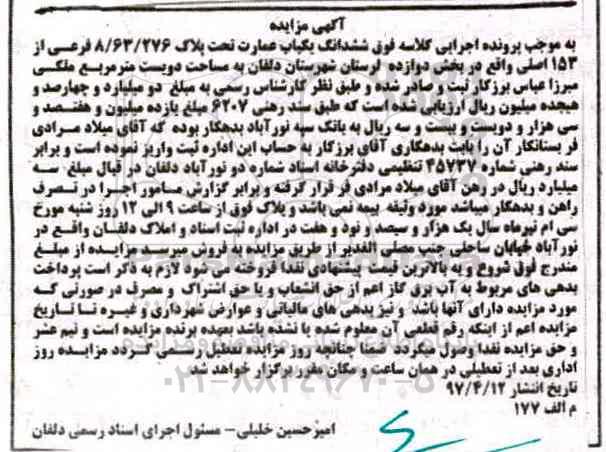 آگهی مزایده
به موجب پرونده اجرایی کلاسه فوق ششدانگ یکباب عمارت تحت پلاک ۸/۶۳/۲۷۶ فرعی از
۱۵۳ اصلی واقع در بخش دوازده لرستان شهرستان دلفان به مساحت دویست مترمربع ملکی
میرزا عباس برزکار ثبت و صادر شده و طبق نظر کارشناس رسمی به مبلغ دو میلیارد و چهارصد و
هیجده میلیون ریال ارزیابی شده است که طبق سند رهنی ۶۲۰۷ مبلغ یازده میلیون و هفتصد و
سی هزار و دویست و بیست و سه ریال به بانک سپه نورآباد بدهکار بوده که آقای میلاد مرادی
فر بستانکار آن را بابت بدهکاری آقای برزکار به حساب این اداره ثبت واریز نموده است و برابر
سند رهنی شماره ۴۵۷۳۷ تنظیمی دفترخانه اسناد شماره دو نورآباد دلفان در قبال مبلغ سه
میلیارد ریال در رهن آقای میلاد مرادی فر قرار گرفته و برابر گزارش مامور اجرا در تصرف
راهن و بدهکار میباشد مورد وثیقه بیمه نمی باشد و پلاک فوق از ساعت ۹ الی ۱۲ روز شنبه مورخ
سی ام تیرماه سال یک هزار و سیصد و نود و هفت در اداره ثبت اسناد و املاک دلفان واقع در
نورآباد خیابان ساحلی جنب مصلی الغدیر از طریق مزایده به فروش میرسد مزایده از مبلغ
مندرج فوق شروع و به بالاترین قیمت پیشنهادی نقدا فروخته می شود لازم به ذکر است پرداخت
بدهی های مربوط به آب برق گاز اعم از حق انشعاب و یا حق اشتراک و مصرف در صورتی که
مورد مزایده دارای آنها باشد و نیز بدهی های مالیاتی و عوارض شهرداری و غیره تا تاریخ
مزایده اعم از اینکه رقم قطعی آن معلوم شده یا نشده باشد بعهده برنده مزایده است و نیم عشر
و حق مزایده نقدا وصول میگردد ضمنا چنانچه روز مزایده تعطیل رسمی گردد مزایده روز
اداری بعد از تعطیلی در همان ساعت و مکان مقرر برگزار خواهد شد
۰۲۱-۸۸۳۴۹۶۷۰-۵
تاریخ انتشار ۹۷/۴/۱۲
م الف ۱۷۷
امیرحسین خلیلی – مسئول اجرای اسناد رسمی دلفان